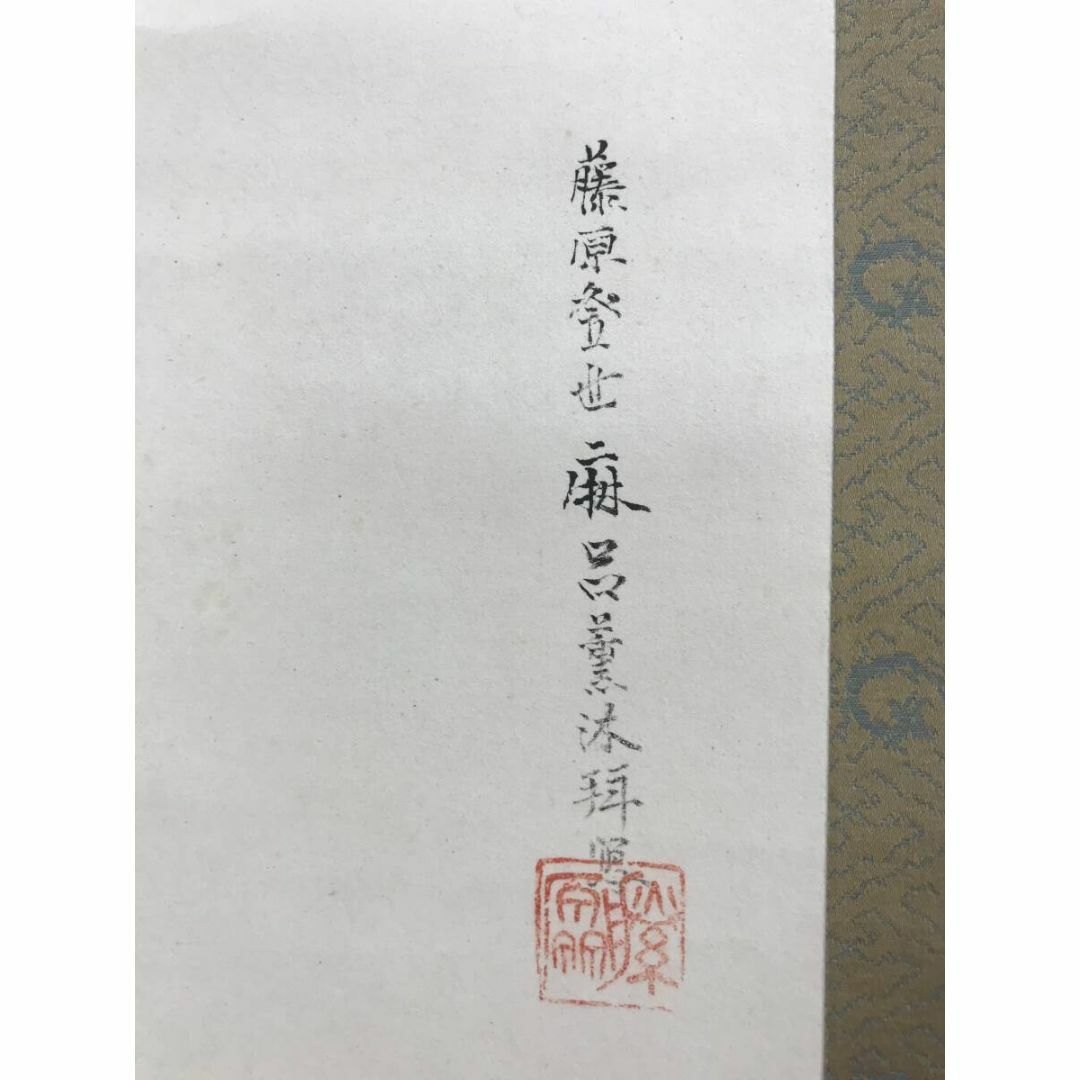 藤原登世麻呂薫沐拜寫